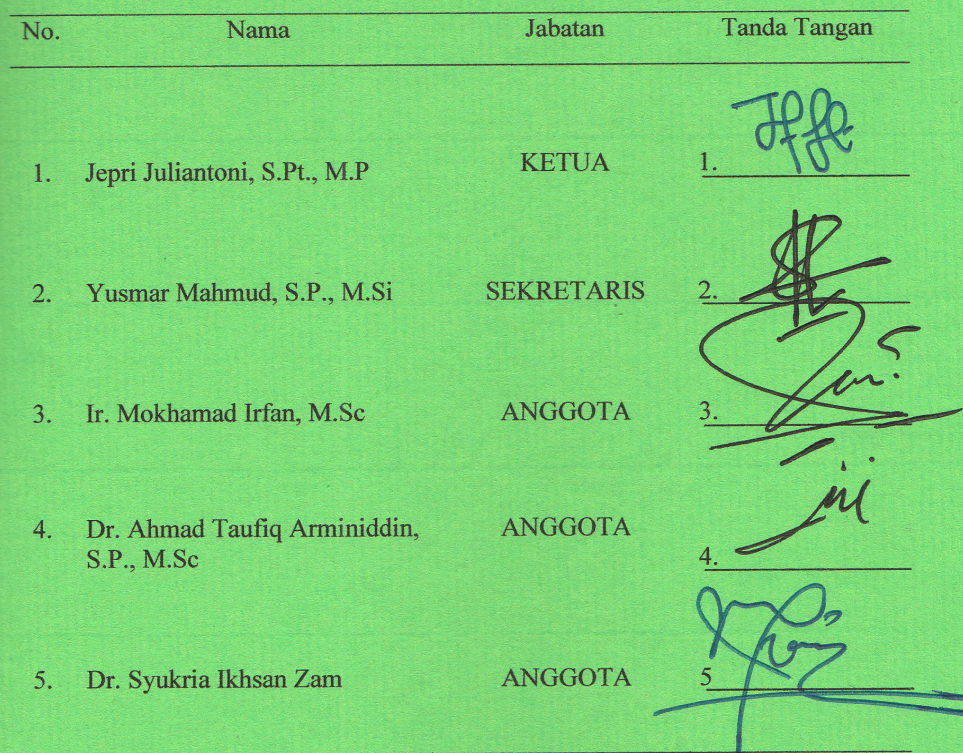 No. Nama Jabatan Tanda Tangan
1. Jepri Juliantoni, S.Pt., M.P KETUA 1.
2. Yusmar Mahmud, S.P., M.Si SEKRETARIS 2.
3. Ir. Mokhamad Irfan, M.Sc ANGGOTA 3.
4. Dr. Ahmad Taufiq Arminiddin, ANGGOTA
S.P., M.Sc 4.
5. Dr. Syukria Ikhsan Zam ANGGOTA 5